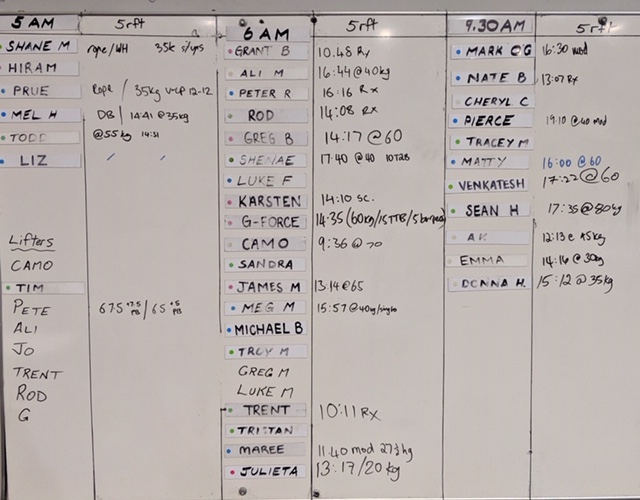 5 AM 5rft
SHANE M rope/WH 35k
HIRAM
PRUE Rope / 35kg 12-12
MEL H DB 14:41 @35kg
TODD @55kg 14:31
LIZ / /
Lifters
CAMO
TIM
PETE 67.5 +7.5 PB / 65 +5 PB
ALI
JO
TRENT
ROD
G
6 AM 5rft
GRANT B 10.48 Rx
ALI M 16:44 @40kg
PETER R 16:16 Rx
ROD 14:08 Rx
GREG B 14:17 @60
SHENAE 17:40 @40 10T2B
LUKE F
KARSTEN 14:10 SC.
G-FORCE 14:35 (60kg/15TTB/5burpees)
CAMO 9:36 @70
SANDRA
JAMES M 13:14 @65
MEG M 15:57 @40kg/single
MICHAEL B
TROY M
GREG M
LUKE M
TRENT 10:11 RX
TRISTAN
MAREE 11.40 mod 27½kg
JULIETA 13:17/20kg
9.30AM 5rft
MARK O'G 16:30 mod
NATE B 13:07 Rx
CHERYL C
PIERCE 19:10 @40 mod
TRACEY M
MATTY 16:00 @60
VENKATESH 17:22 @60
SEAN H 17:35 @80kg
AK 12:13 @ 45kg
EMMA 14:16 @30kg
DONNA H. 15:12 @35kg